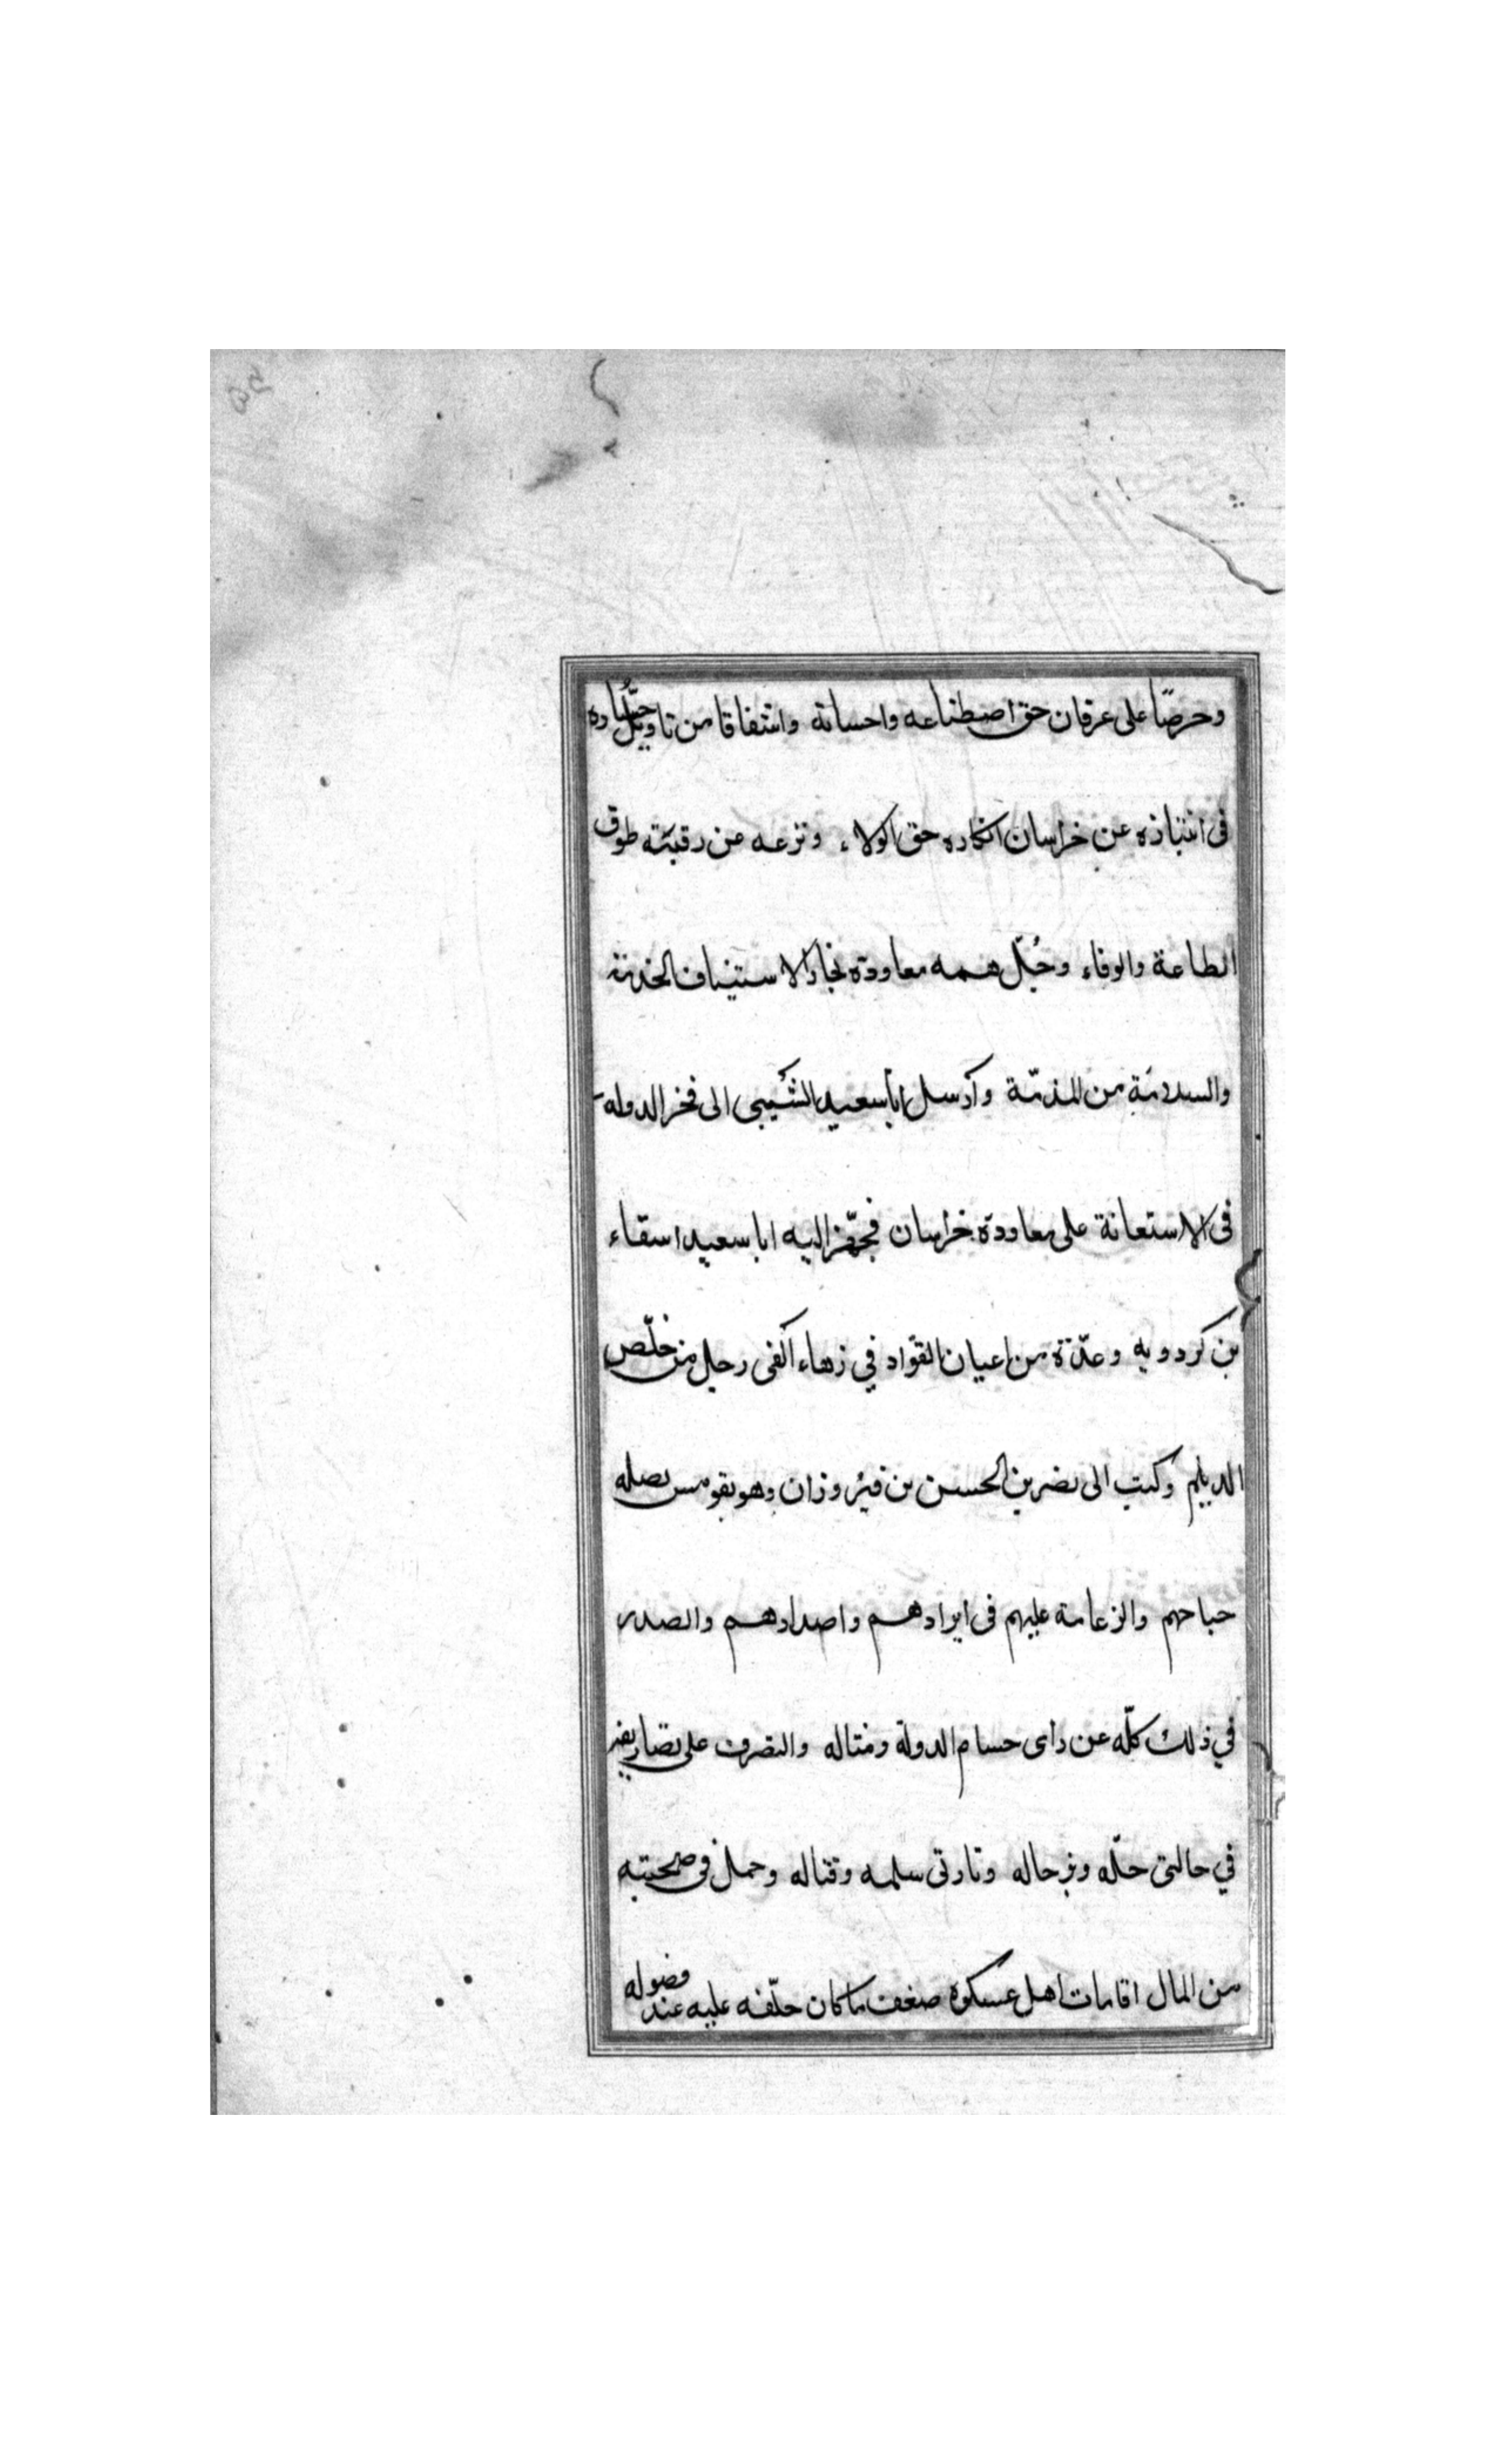 وحرصًا على عرفان حق اصطناعه واحسانه واشفاقا من تاويل حساده
فى انتباذه عن خراسان انكاره حق الولاء ونزعه عن رقبته طوق
الطاعة والوفاء وجُلّ همه معاودة بخارا لاستيناف الخدمة
والسلامة من المذمّة وأرسل أبا سعيد الشَيبى الى فخر الدولة
فى الاستعانة على معاودة خراسان فجهّز اليه ابا سعيد اسفاء
بن كردويه وعدّة من اعيان القوّاد في زهاء ألفى رجل من خلّص
الديلم وكتب الى نصر بن الحسن بن فيروزان وهو بقومس بصله
جباحهم والزعامة عليهم فى ايرادهم واصدارهم والصدر
في ذلك كلّه عن راى حسام الدولة ومثاله والتصرف على تصاريفه
في حالتى حلّه وترحاله وتارتى سلمه وقتاله وحمل فى صحبته
من المال اقامات اهل عسكره ضعف ما كان حلّفه عليه عند وصوله